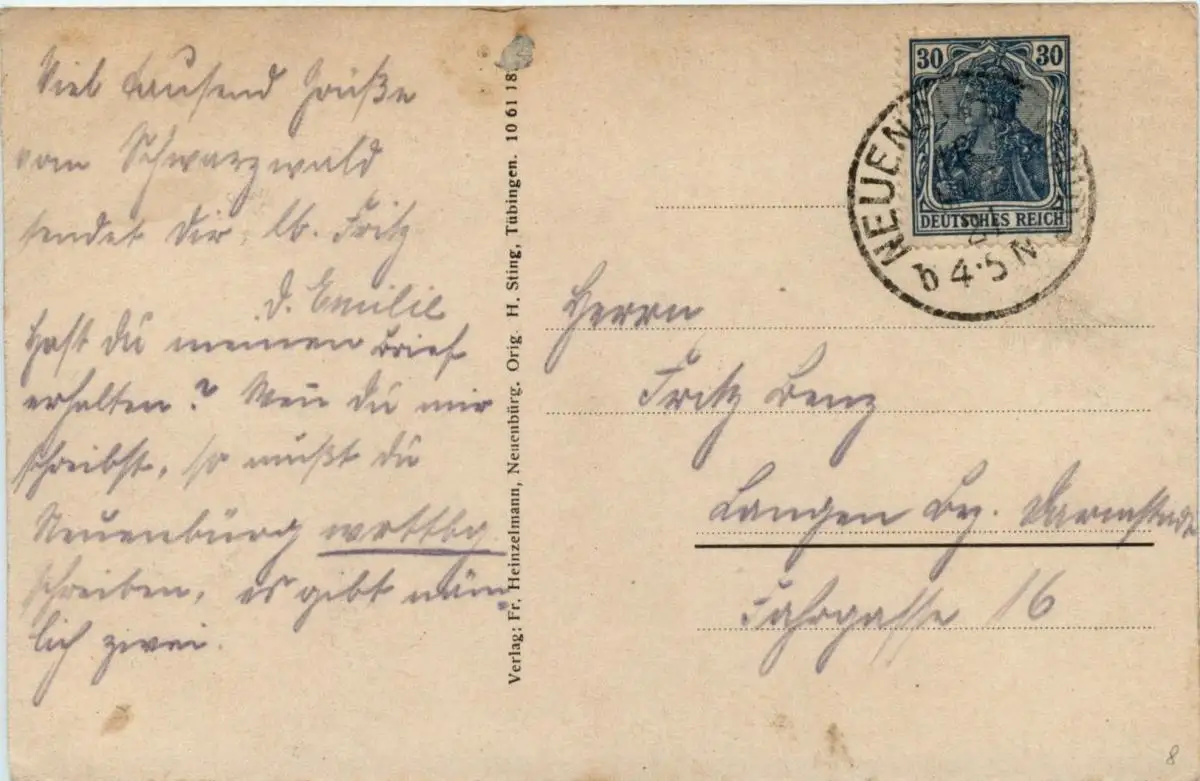 Viel tausend Grüße
vom Schwarzwald
sendet Dir lb. Fritz
d. Emilie
Hast Du meinen Brief
erhalten? Wen̄ Du mir
schreibst, so mußt Du
Neuenbürg wrttbg
schreiben, es gibt näm-
lich zwei.
Verlag: Fr. Heinzelmann, Neuenbürg. Orig. H. Sting, Tübingen. 10 61 18
30 30
DEUTSCHES REICH
NEUENBÜRG
b 4-5 N
Herrn
Fritz Benz
Langen Bz. Darmstadt
Fahrgasse 16
8